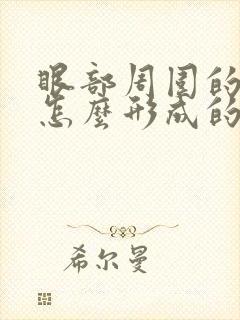 眼部周围的
怎麽形成的
希尔曼